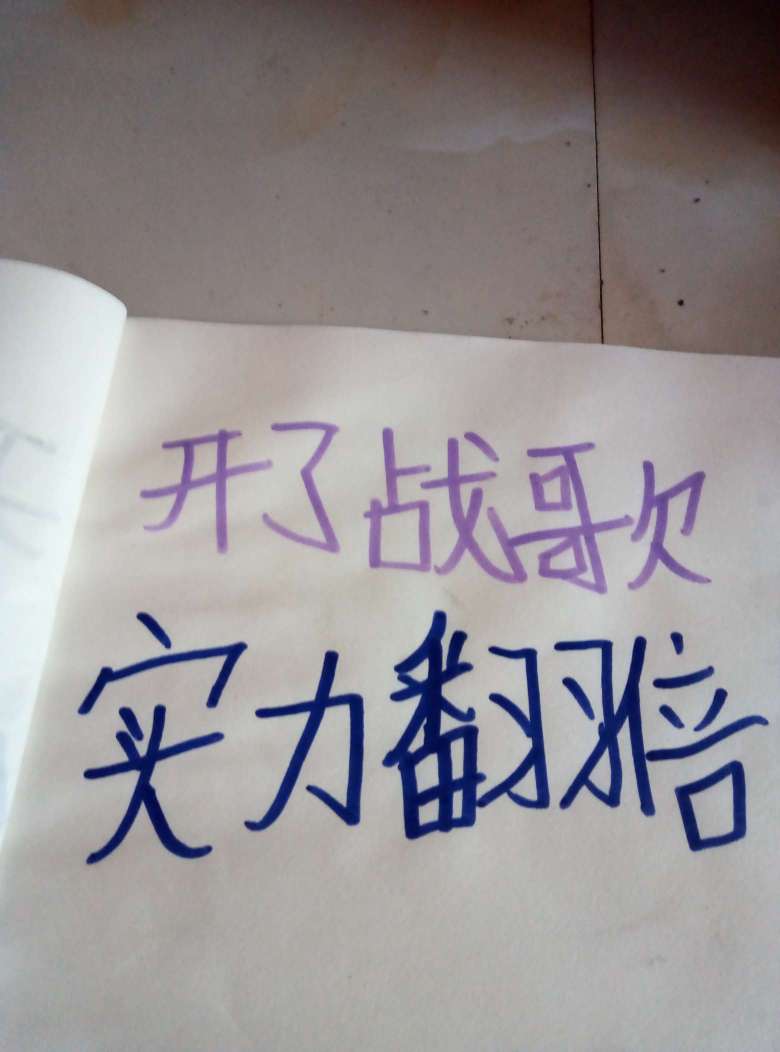 开了战歌
实力翻倍